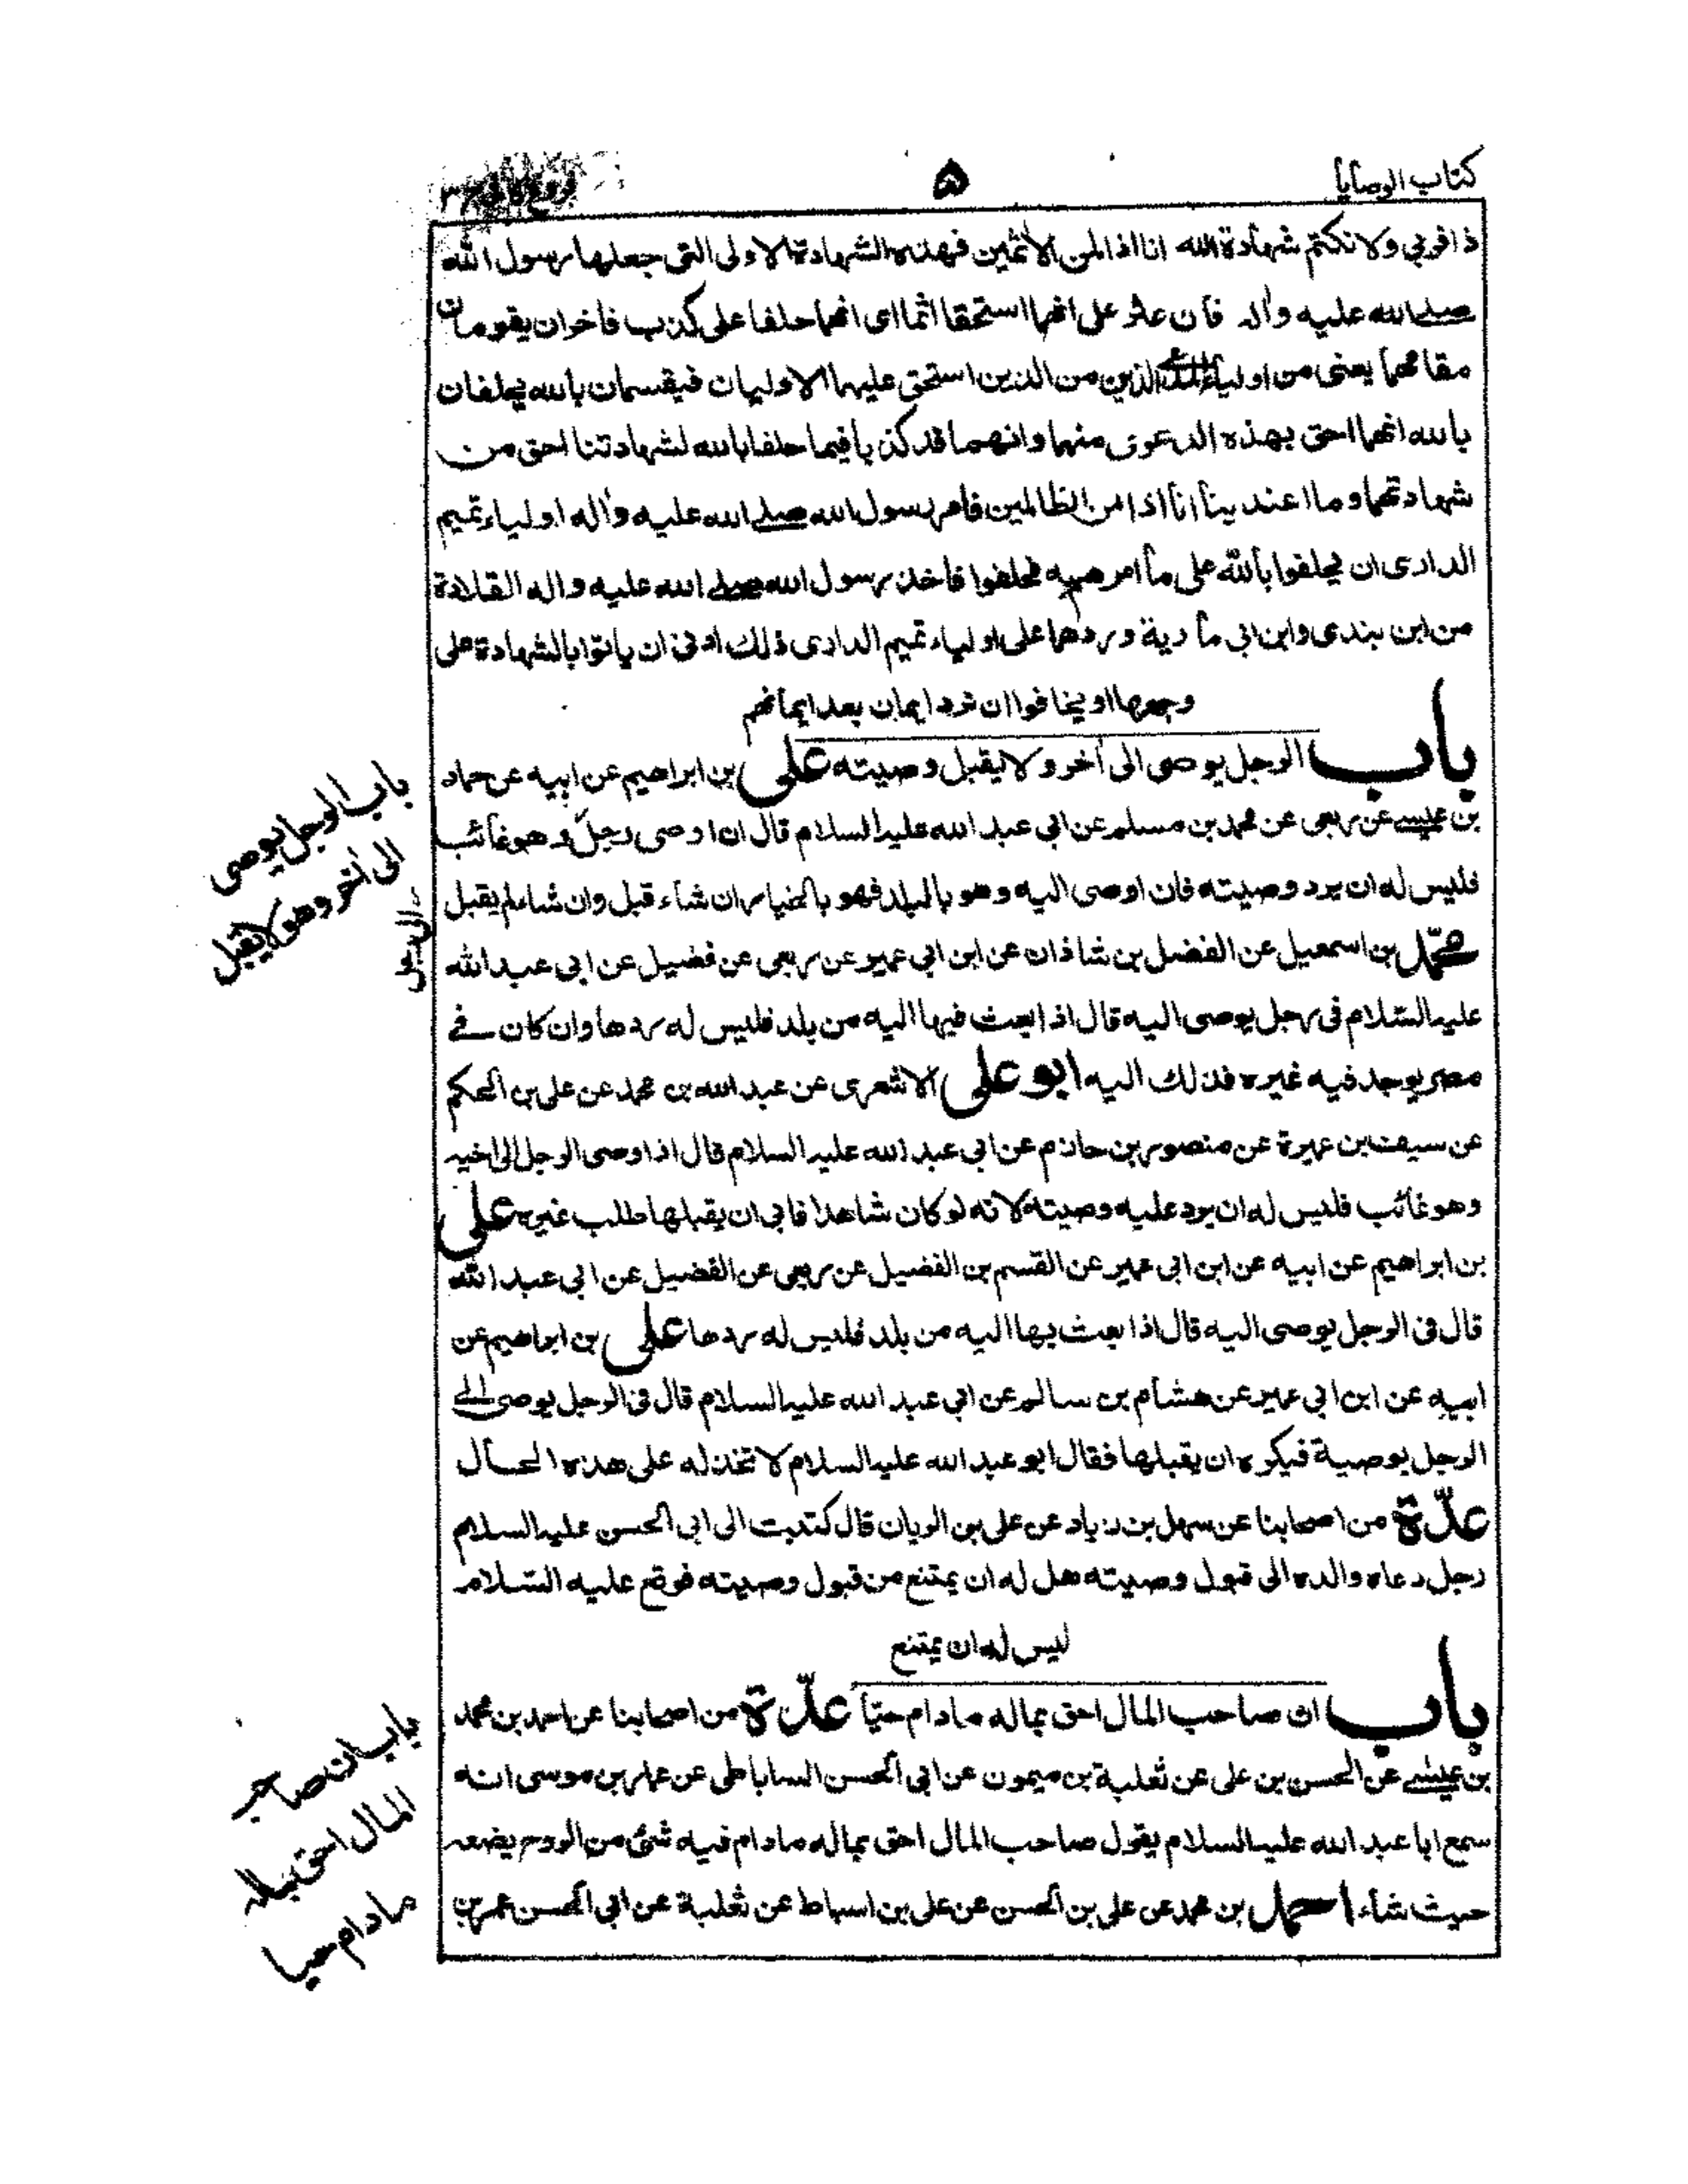 كتاب الوصايا
۵
ذا قربى ولا نكتم شهادة الله انا اذا لمن الاثمين فهذه الشهادة الاولى التى جعلها رسول الله
صلى الله عليه واله فان عثر على انهما استحقا اثما اى انهما حلفا على كذب فاخران يقومان
مقامهما يعنى من اولياء المدعى الذين من الذين استحق عليهما الاوليان فيقسمان بالله يحلفان
بالله انهما احق بهذه الدعوى منهما وانهما قد كذبا فيما حلفا بالله لشهادتنا احق من
شهادتهما وما اعتدينا انا اذا لمن الظالمين فامر رسول الله صلى الله عليه واله اولياء تميم
الدارى ان يحلفوا بالله على ما امرهم به فحلفوا فاخذ رسول الله صلى الله عليه واله القلادة
من ابن بندى وابن ابى مارية وردهما على اولياء تميم الدارى ذلك ادنى ان ياتوا بالشهادة على
وجهها او يخافوا ان ترد ايمان بعد ايمانهم
باب الرجل يوصى الى اخر ولا يقبل وصيته على بن ابراهيم عن ابيه عن حماد
بن عيسى عن ربعى عن محمد بن مسلم عن ابى عبد الله عليه السلام قال ان اوصى رجل وهو غائب
فليس له ان يرد وصيته فان اوصى اليه وهو بالبلد فهو بالخيار ان شاء قبل وان شاء لم يقبل
محمد بن اسمعيل عن الفضل بن شاذان عن ابن ابى عمير عن ربعى عن فضيل عن ابى عبد الله
عليه السلام فى رجل يوصى اليه قال اذا بعث فيها اليه من بلد فليس له ردها وان كان فى
مصر يوجد فيه غيره فذلك اليه ابو على الاشعرى عن عبد الله بن محمد عن على بن الحكم
عن سيف بن عميرة عن منصور بن حازم عن ابى عبد الله عليه السلام قال اذا اوصى الرجل الى اخيه
وهو غائب فليس له ان يرد عليه وصيته لانه لو كان شاهدا فابى ان يقبلها طلب غيره على
بن ابراهيم عن ابيه عن ابن ابى عمير عن القسم بن الفضيل عن ربعى عن الفضيل عن ابى عبد الله
قال فى الرجل يوصى اليه قال اذا بعث بها اليه من بلد فليس له ردها على بن ابراهيم عن
ابيه عن ابن ابى عمير عن هشام بن سالم عن ابى عبد الله عليه السلام قال فى الرجل يوصى الى
الرجل بوصية فيكره ان يقبلها فقال ابو عبد الله عليه السلام لا تخذله على هذه الحال
عدّة من اصحابنا عن سهل بن زياد عن على بن الريان قال كتبت الى ابى الحسن عليه السلام
رجل دعاه والده الى قبول وصيته هل له ان يمتنع من قبول وصيته فوقع عليه السلام
ليس له ان يمتنع
باب ان صاحب المال احق بماله مادام حيّا عدّة من اصحابنا عن احمد بن محمد
بن عيسى عن الحسن بن على عن ثعلبة بن ميمون عن ابى الحسن الساباطى عن عمار بن موسى انه
سمع ابا عبد الله عليه السلام يقول صاحب المال احق بماله مادام فيه شئ من الروح يضعه
حيث شاء احمد بن محمد عن على بن الحسن عن على بن اسباط عن ثعلبة عن ابى الحسن عمر بن
باب الرجل يوصى
الى اخر وهو لا يقبل
الرجل
باب ان صاحب
المال احق بماله
مادام حيا